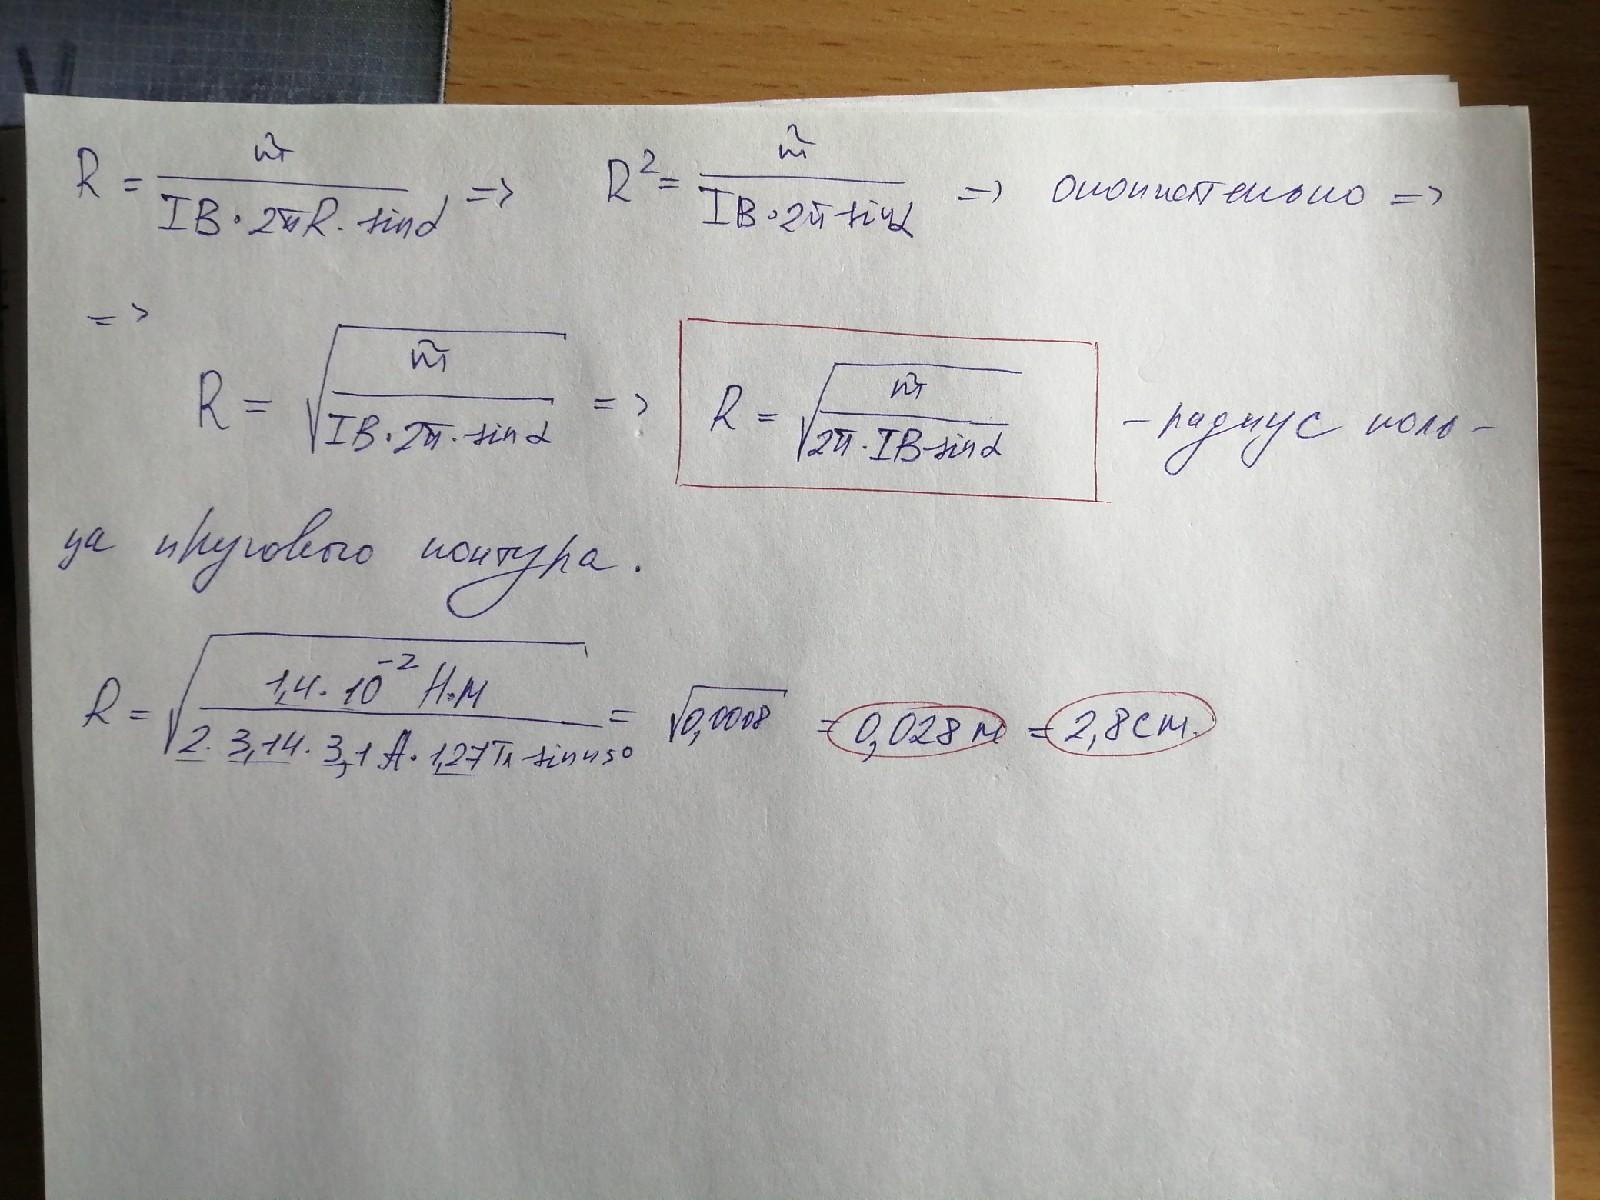 R = m̃/(IB·2πR·sinα) => R² = m̃/(IB·2π sinα) => окончательно =>
=> R = √(m̃/(IB·2π·sinα)) => R = √(m̃/(2π·IB·sinα)) - радиус коль-
ца кругового контура.
R = √(1,4·10⁻² Н·м/(2·3,14·3,1 А·1,27Тл·sin45°)) = √0,0008 = 0,028 м = 2,8 см.